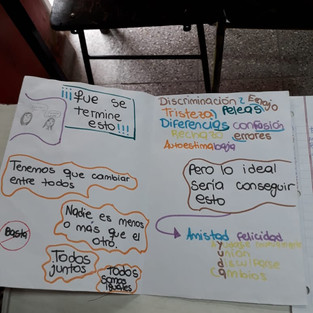 ¡¡¡Que se
termine
esto!!!
Tenemos que cambiar
entre todos
Nadie es menos
o más que el
otro.
Basta
Todos
juntos
Todos
somos
iguales
Discriminación Enojo
Tristeza Peleas
Diferencias confusión
Rechazo errores
Autoestima baja
Pero lo ideal
sería conseguir
esto
Amistad felicidad
unión
disculparse
Cambios